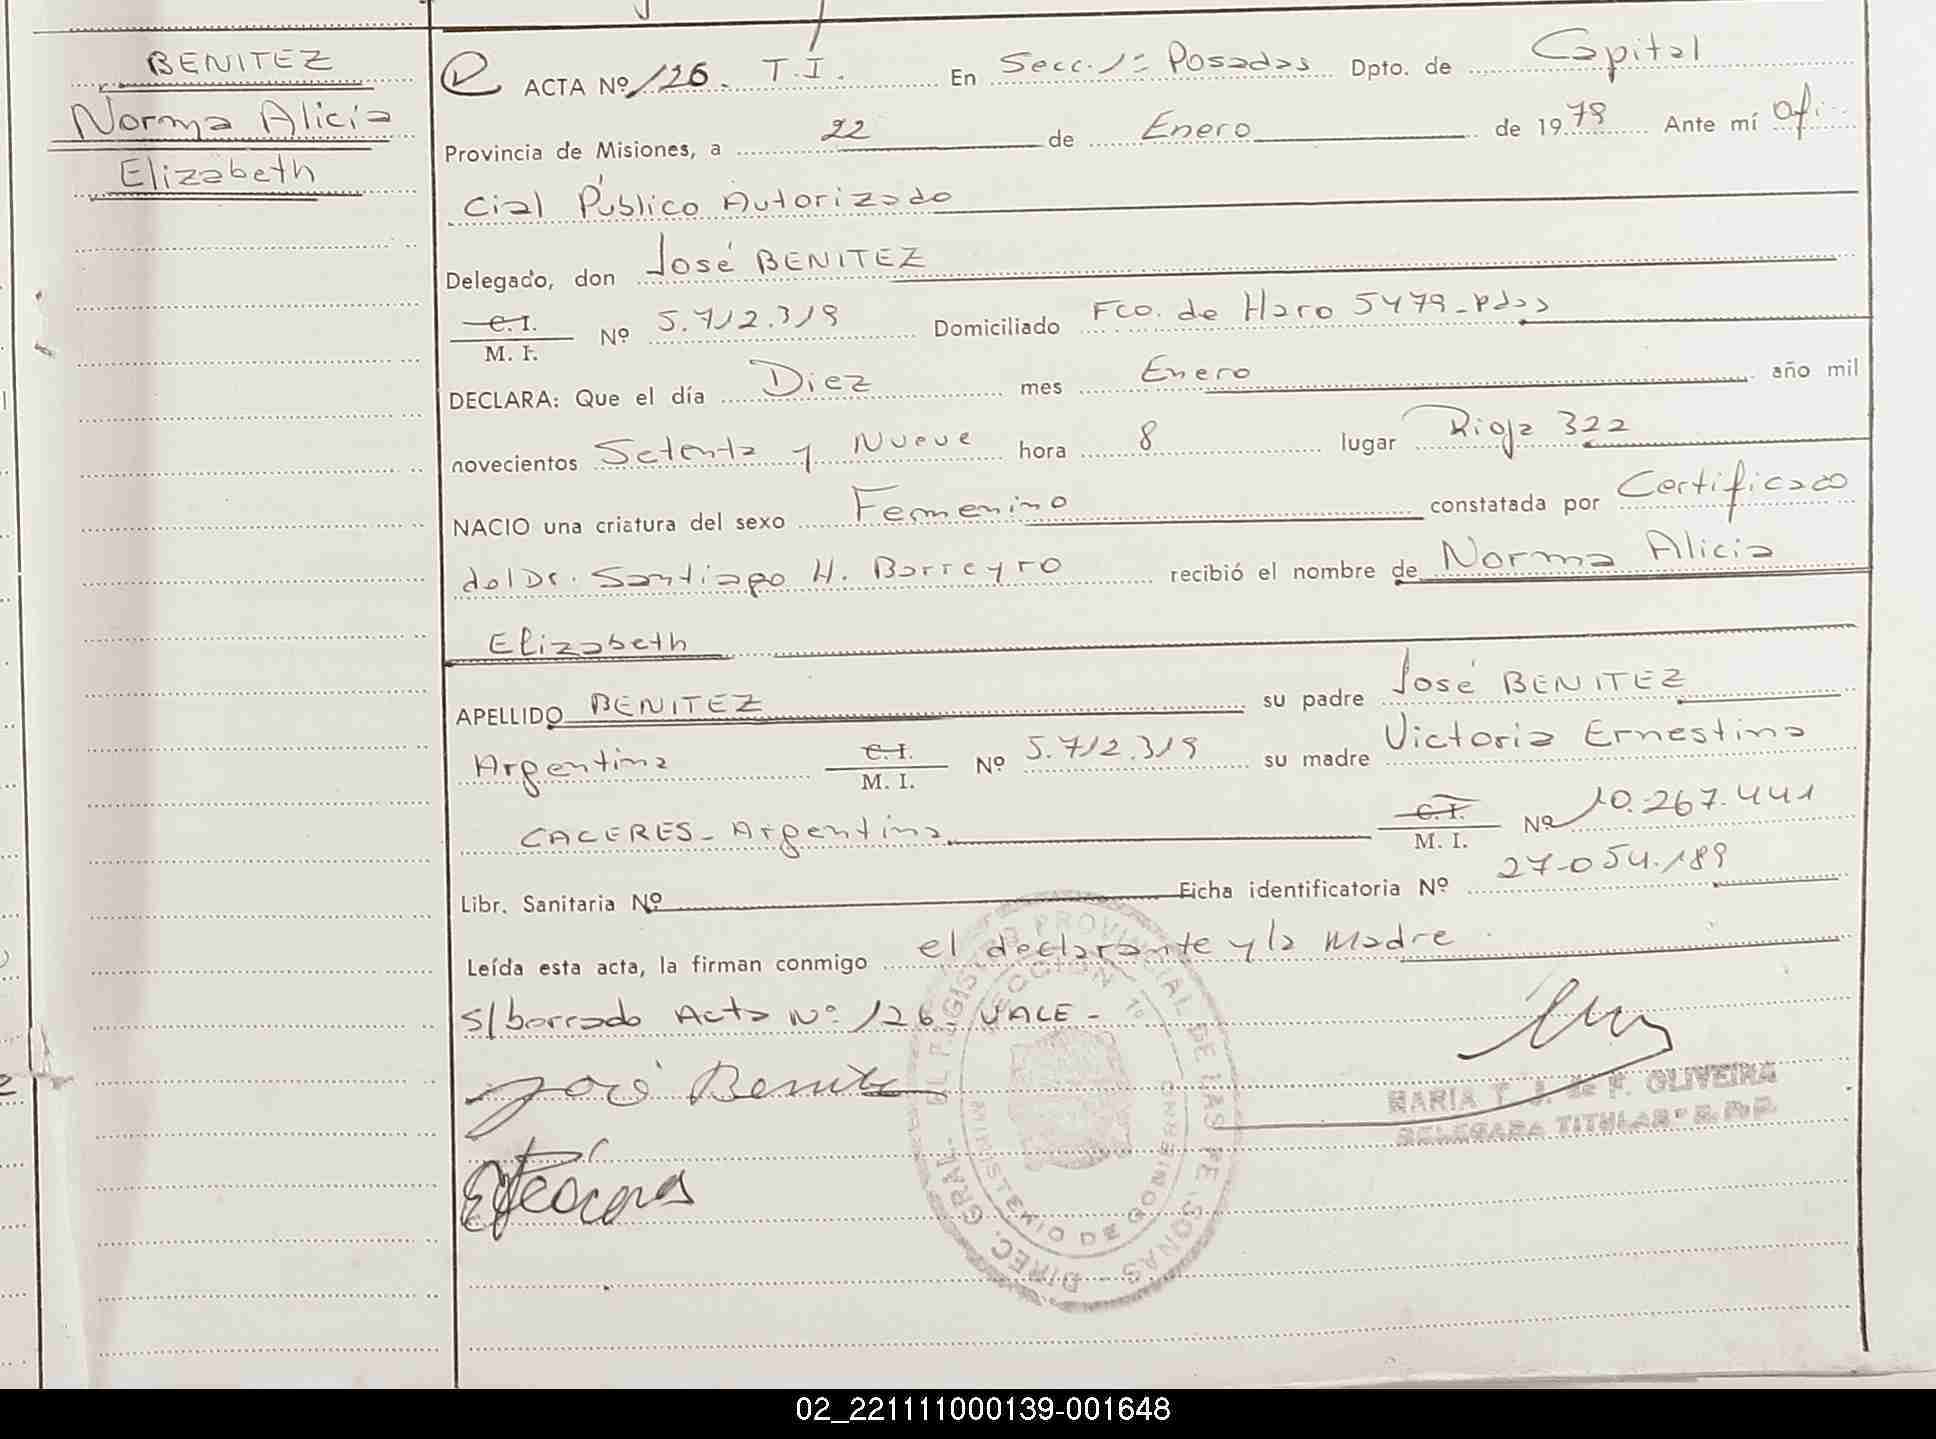 BENITEZ
Norma Alicia
Elizabeth
ACTA Nº 126. T.I. En Secc. 1º Posadas Dpto. de Capital
Provincia de Misiones, a 22 de Enero de 1979 Ante mí Ofi-
cial Público Autorizado
Delegado, don José BENITEZ
C. I.
M. I. Nº 5.712.319 Domiciliado Fco. de Haro 5479-Pdas
DECLARA: Que el día Diez mes Enero año mil
novecientos Setenta y Nueve hora 8 lugar Rioja 322
NACIO una criatura del sexo Femenino constatada por Certificado
del Dr. Santiago H. Barreyro recibió el nombre de Norma Alicia
Elizabeth
APELLIDO BENITEZ su padre José BENITEZ
Argentina C. I.
M. I. Nº 5.712.319 su madre Victoria Ernestina
CACERES - Argentina C. I.
M. I. Nº 10.267.441
Libr. Sanitaria Nº Ficha identificatoria Nº 27.054.189
Leída esta acta, la firman conmigo el declarante y la madre
S/borrado Acta Nº 126. VALE -
José Benitez
MARIA T. J. de F. OLIVEIRA
DELEGADA TITULAR
DIREC. GRAL. DEL REGISTRO PROVINCIAL DE LAS PERSONAS -
SECCION 1º
MINISTERIO DE GOBIERNO
02_221111000139-001648